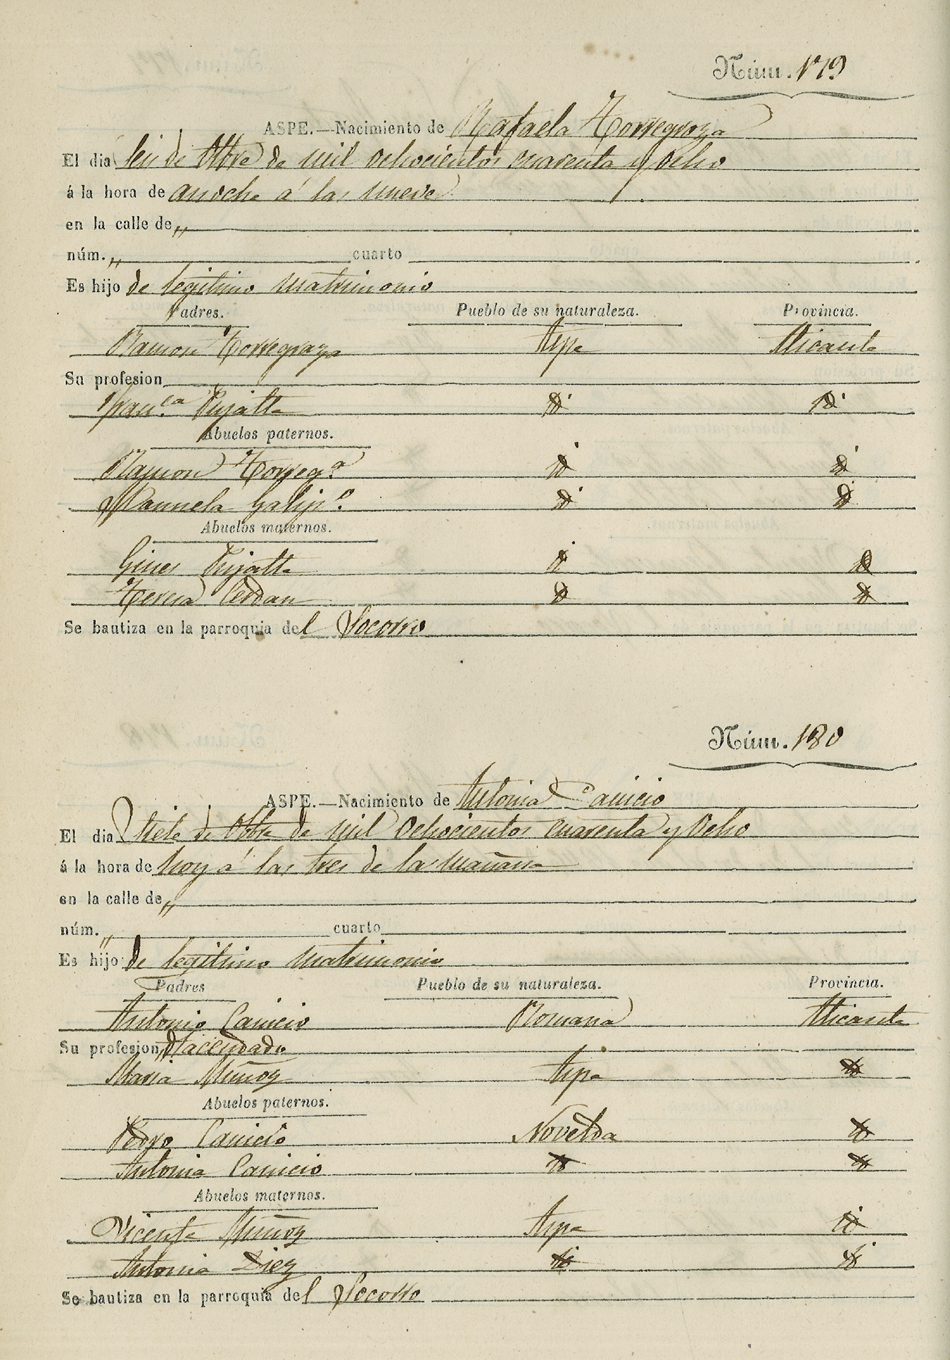 Núm. 179
ASPE.—Nacimiento de Rafaela Torregroza
El dia seis de Obre de mil ochocientos cuarenta y ocho
á la hora de anoche á las nueve
en la calle de „
núm. „ cuarto
Es hijo de legitimo matrimonio
Padres. Pueblo de su naturaleza. Provincia.
Ramon Torregroza Aspe Alicante
Su profesion
Fran.ca Pujalte id id
Abuelos paternos.
Ramon Torreg.a id id
Manuela Galip.o id id
Abuelos maternos.
Gines Pujalte id id
Teresa Cerdan id id
Se bautiza en la parroquia del Socorro
Núm. 180
ASPE.—Nacimiento de Antonia Canicio
El dia Siete de Obre de mil ochocientos cuarenta y ocho
á la hora de hoy á las tres de la mañana
en la calle de „
núm. „ cuarto
Es hijo de legitimo matrimonio
Padres Pueblo de su naturaleza. Provincia.
Antonio Canicio Romana Alicante
Su profesion Hacendado
Maria Muñoz Aspe id
Abuelos paternos.
Pedro Canicio Novelda id
Antonia Canicio id id
Abuelos maternos.
Vicente Muñoz Aspe id
Antonia Diez id id
Se bautiza en la parroquia del Socorro